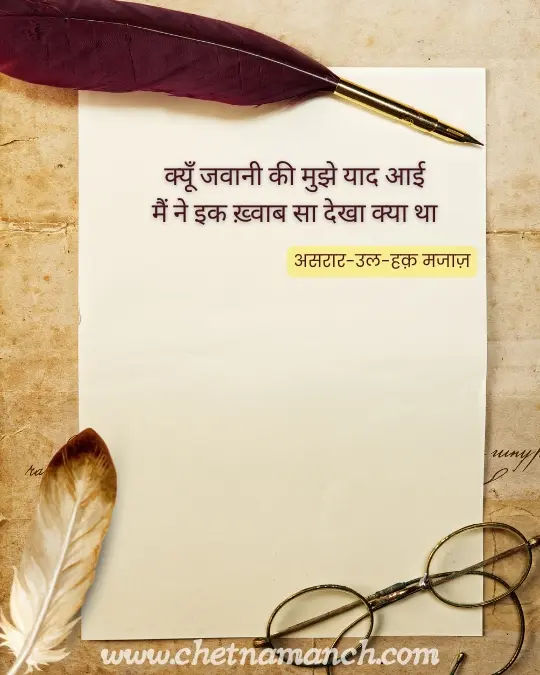 क्यूँ जवानी की मुझे याद आई
मैं ने इक ख़्वाब सा देखा क्या था
असरार-उल-हक़ मजाज़
www.chetnamanch.com